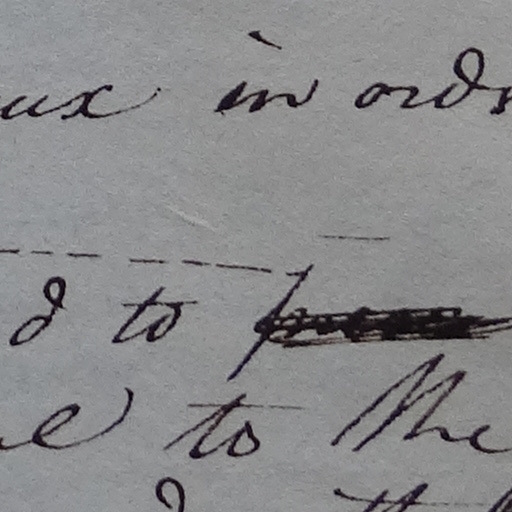 aux in ord
d to
e to the